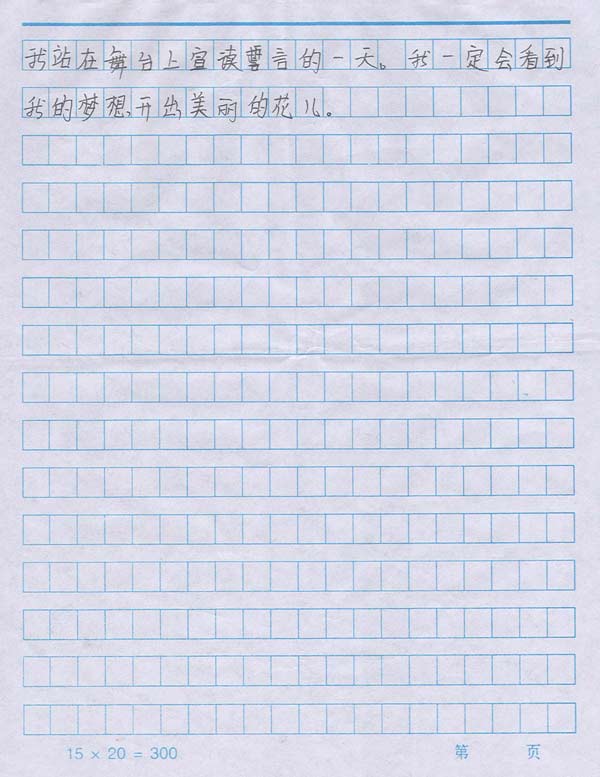 我站在舞台上宣读誓言的一天。我一定会看到
我的梦想,开出美丽的花儿。
15 × 20 = 300 第 页